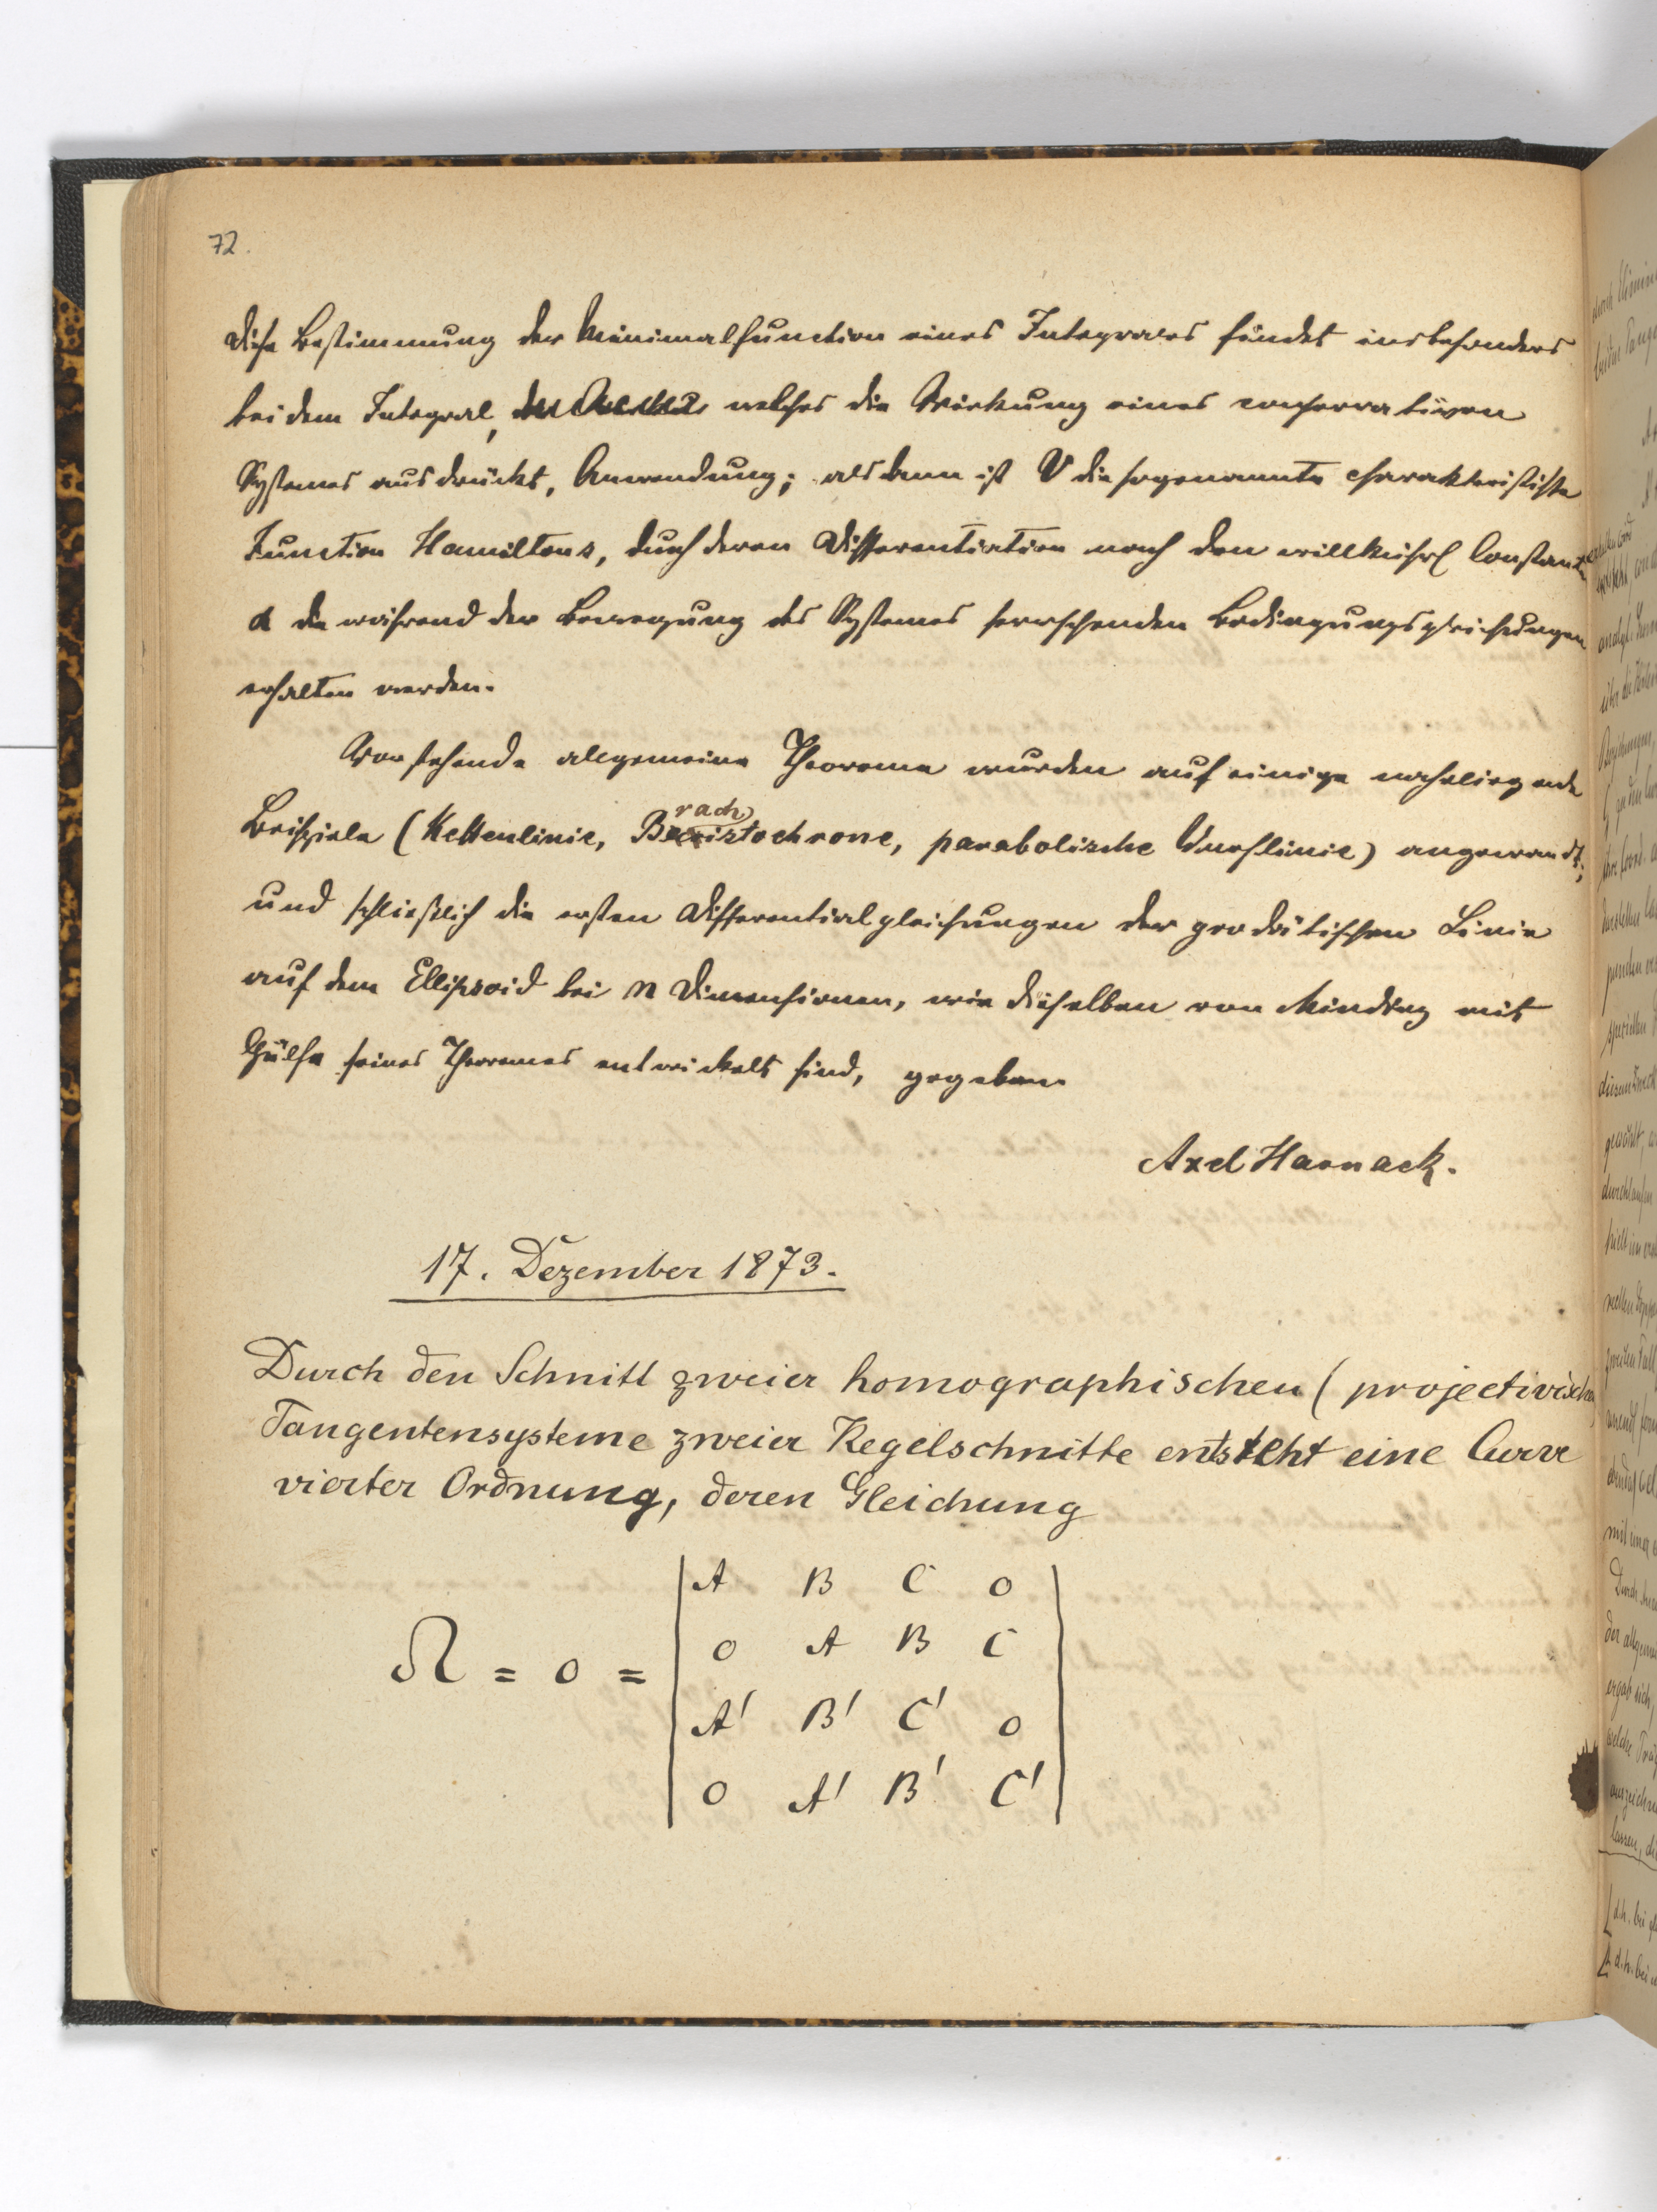 72.
Diese Bestimmung der Minimalfunction eines Integrales findet insbesonders
bei dem Integral, welches die Wirkung eines conservativen
Systemes ausdrückt, Anwendung; alsdann ist V die sogenannte charakteristische
Function Hamiltons, durch deren Differentiation nach den willkührl Constanten
α die während der Bewegung des Systemes herrschenden Bedingungsgleichungen
erhalten werden.
Vorstehende allgemeine Theoreme wurden auf einige naheliegende
Beispiele (Kettenlinie, Brachistochrone, parabolische Wurflinie) angewandt;
und schließlich die ersten Differentialgleichungen der geodätischen Linie
auf dem Ellipsoid bei n Dimensionen, wie dieselben von Minding mit
Hülfe seines Theoremes entwickelt sind, gegeben.
Axel Harnack.
17. Dezember 1873.
Durch den Schnitt zweier homographischen (projectivischen)
Tangentensysteme zweier Kegelschnitte entsteht eine Curve
vierter Ordnung, deren Gleichung
A B C 0
0 A B C
Ω = 0 =
A' B' C' 0
0 A' B' C'